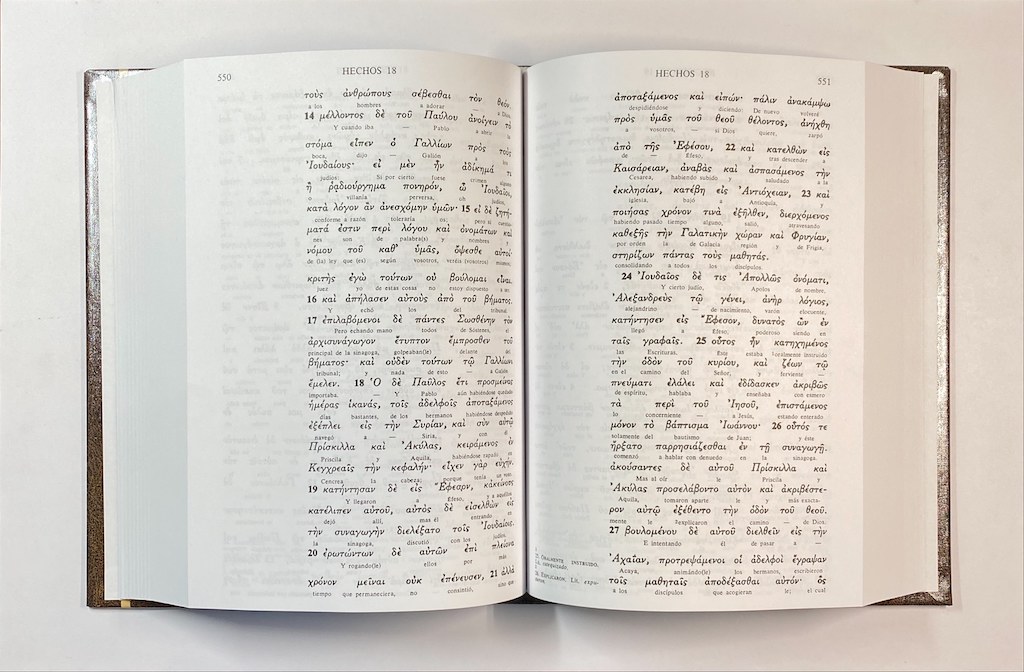 550
HECHOS 18
τοὺς ἀνθρώπους σέβεσθαι τὸν θεόν.
a los hombres a adorar — a Dios.
14 μέλλοντος δὲ τοῦ Παύλου ἀνοίγειν τὸ
Y cuando iba — Pablo a abrir la
στόμα εἶπεν ὁ Γαλλίων πρὸς τοὺς
boca, dijo — Galión a los
Ἰουδαίους· εἰ μὲν ἦν ἀδίκημά τι
judíos: Si por cierto fuese crimen alguno
ἢ ῥᾳδιούργημα πονηρόν, ὦ Ἰουδαῖοι,
o villanía perversa, oh judíos,
κατὰ λόγον ἂν ἀνεσχόμην ὑμῶν· 15 εἰ δὲ ζητή-
conforme a razón toleraría os; pero si cuestio-
ματά ἐστιν περὶ λόγου καὶ ὀνομάτων καὶ
nes son de palabra(s) y nombres y
νόμου τοῦ καθ' ὑμᾶς, ὄψεσθε αὐτοί·
de (la) ley que (es) según vosotros, veréis (vosotros) mismos;
κριτὴς ἐγὼ τούτων οὐ βούλομαι εἶναι.
juez yo de estas cosas no estoy dispuesto a ser.
16 καὶ ἀπήλασεν αὐτοὺς ἀπὸ τοῦ βήματος.
Y echó los del tribunal.
17 ἐπιλαβόμενοι δὲ πάντες Σωσθένην τὸν
Pero echando mano todos de Sóstenes, el
ἀρχισυνάγωγον ἔτυπτον ἔμπροσθεν τοῦ
principal de la sinagoga, golpeaban(le) delante del
βήματος· καὶ οὐδὲν τούτων τῷ Γαλλίωνι
tribunal; y nada de esto — a Galión
ἔμελεν. 18 Ὁ δὲ Παῦλος ἔτι προσμείνας
importaba. — Y Pablo aún habiéndose quedado
ἡμέρας ἱκανάς, τοῖς ἀδελφοῖς ἀποταξάμενος
días bastantes, de los hermanos habiéndose despedido
ἐξέπλει εἰς τὴν Συρίαν, καὶ σὺν αὐτῷ
navegó a — Siria, y con él
Πρίσκιλλα καὶ Ἀκύλας, κειράμενος ἐν
Priscila y Aquila, habiéndose rapado en
Κεγχρεαῖς τὴν κεφαλήν· εἶχεν γὰρ εὐχήν.
Cencrea la cabeza; porque tenía voto.
19 κατήντησαν δὲ εἰς Ἔφεσον, κἀκείνους
Y llegaron a Efeso, y a aquéllos
κατέλιπεν αὐτοῦ, αὐτὸς δὲ εἰσελθὼν εἰς
dejó allí, mas él entrando en
τὴν συναγωγὴν διελέξατο τοῖς Ἰουδαίοις.
la sinagoga, discutió con los judíos.
20 ἐρωτώντων δὲ αὐτῶν ἐπὶ πλείονα
Y rogando(le) ellos por más
χρόνον μεῖναι οὐκ ἐπένευσεν, 21 ἀλλὰ
tiempo que permaneciera, no consintió, sino que
HECHOS 18
551
ἀποταξάμενος καὶ εἰπών· πάλιν ἀνακάμψω
despidiéndose y diciendo: De nuevo volveré
πρὸς ὑμᾶς τοῦ θεοῦ θέλοντος, ἀνήχθη
a vosotros, — si Dios quiere, zarpó
ἀπὸ τῆς Ἐφέσου, 22 καὶ κατελθὼν εἰς
de — Efeso, y tras descender a
Καισάρειαν, ἀναβὰς καὶ ἀσπασάμενος τὴν
Cesarea, habiendo subido y saludado a la
ἐκκλησίαν, κατέβη εἰς Ἀντιόχειαν, 23 καὶ
iglesia, bajó a Antioquía, y
ποιήσας χρόνον τινὰ ἐξῆλθεν, διερχόμενος
habiendo pasado tiempo alguno, salió, atravesando
καθεξῆς τὴν Γαλατικὴν χώραν καὶ Φρυγίαν,
por orden la de Galacia región y de Frigia,
στηρίζων πάντας τοὺς μαθητάς.
consolidando a todos los discípulos.
24 Ἰουδαῖος δέ τις Ἀπολλῶς ὀνόματι,
Y cierto judío, Apolos de nombre,
Ἀλεξανδρεὺς τῷ γένει, ἀνὴρ λόγιος,
alejandrino — de nacimiento, varón elocuente,
κατήντησεν εἰς Ἔφεσον, δυνατὸς ὢν ἐν
llegó a Efeso, poderoso siendo en
ταῖς γραφαῖς. 25 οὗτος ἦν κατηχημένος
las Escrituras. Este estaba ¹oralmente instruido
τὴν ὁδὸν τοῦ κυρίου, καὶ ζέων τῷ
en el camino del Señor, y ferviente —
πνεύματι ἐλάλει καὶ ἐδίδασκεν ἀκριβῶς
de espíritu, hablaba y enseñaba con esmero
τὰ περὶ τοῦ Ἰησοῦ, ἐπιστάμενος
lo concerniente — a Jesús, estando enterado
μόνον τὸ βάπτισμα Ἰωάννου· 26 οὗτός τε
solamente del bautismo de Juan; y éste
ἤρξατο παρρησιάζεσθαι ἐν τῇ συναγωγῇ.
comenzó a hablar con denuedo en la sinagoga.
ἀκούσαντες δὲ αὐτοῦ Πρίσκιλλα καὶ
Mas al oír le Priscila y
Ἀκύλας προσελάβοντο αὐτὸν καὶ ἀκριβέστε-
Aquila, tomaron aparte le y más exacta-
ρον αὐτῷ ἐξέθεντο τὴν ὁδὸν τοῦ θεοῦ.
mente le ²explicaron el camino — de Dios.
27 βουλομένου δὲ αὐτοῦ διελθεῖν εἰς τὴν
E intentando él de pasar a —
Ἀχαΐαν, προτρεψάμενοι οἱ ἀδελφοὶ ἔγραψαν
Acaya, animándo(le) los hermanos, escribieron
τοῖς μαθηταῖς ἀποδέξασθαι αὐτόν· ὃς
a los discípulos que acogieran le; el cual
25. ORALMENTE INSTRUIDO.
Lit. catequizado.
26. EXPLICARON. Lit. expu-
sieron.